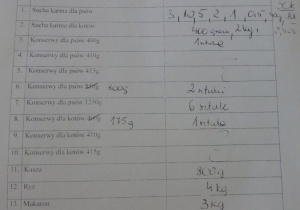 1. Sucha karma dla psów 3, 1,5, 2, 1,
2. Sucha karma dla kotów 400 gram, 2 kg,
3. Konserwy dla psów 400g 1 sztuka
4. Konserwy dla psów
5. Konserwy dla psów 415g
6. Konserwy dla psów 800g 2 sztuki
7. Konserwy dla psów 1250g 6 sztuk
8. Konserwy dla kotów 175g 1 sztuka
9. Konserwy dla kotów 410g
10. Konserwy dla kotów 415g
11. Kasza 800g
12. Ryż 4kg
13. Makaron 3kg